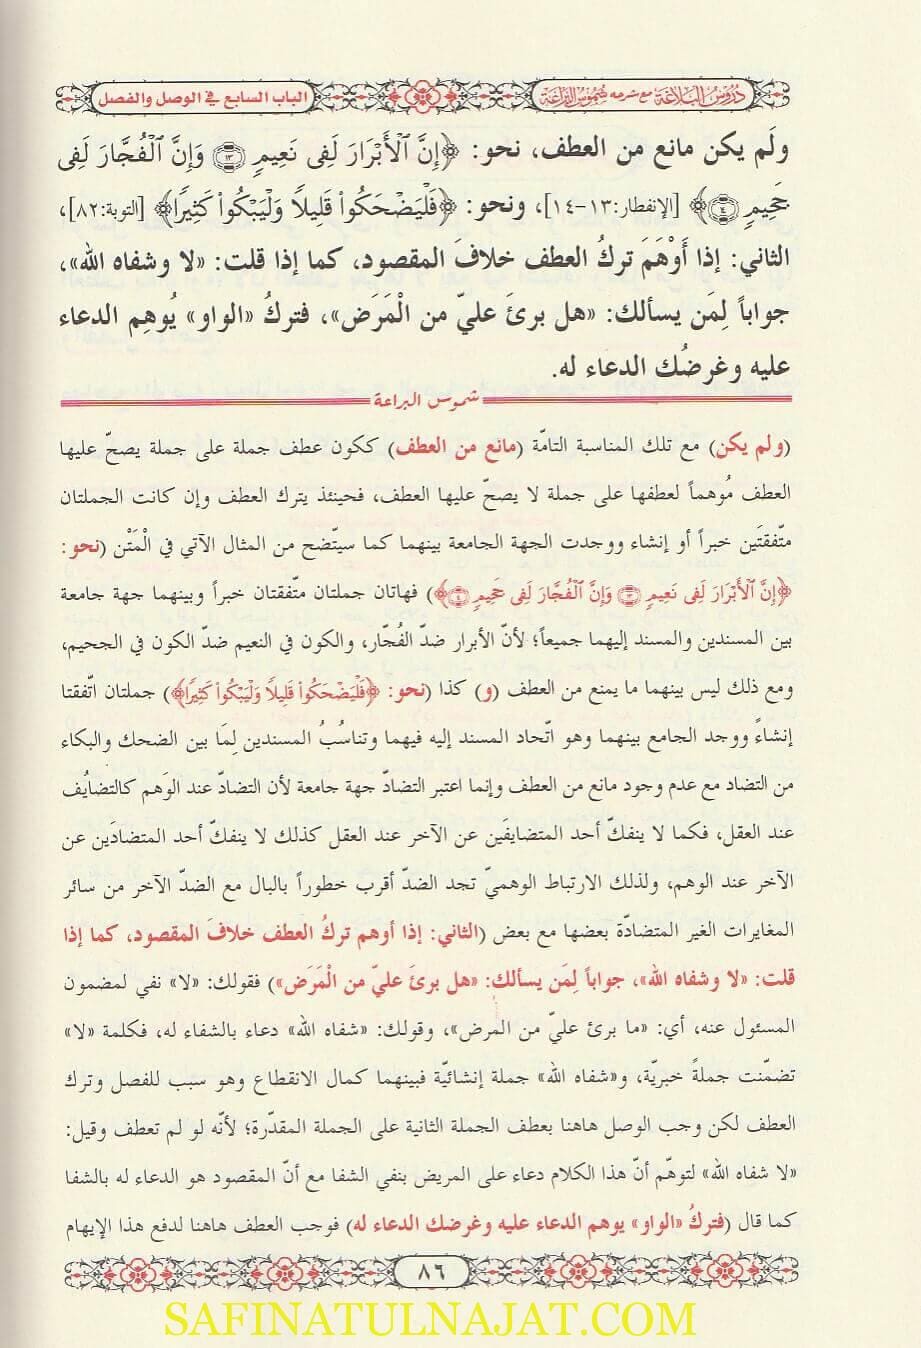 دُرُوسُ البَلَاغَة مع شرحه شُمُوسُ البَرَاعَة
الباب السابع في الوصل والفصل
ولَم يكن مانع من العطف، نحو: ﴿إِنَّ ٱلْأَبْرَارَ لَفِى نَعِيمٍ ۝١٣ وَإِنَّ ٱلْفُجَّارَ لَفِى
جَحِيمٍ ۝١٤﴾ [الإنفطار:١٣-١٤]، ونحو: ﴿فَلْيَضْحَكُوا۟ قَلِيلًا وَلْيَبْكُوا۟ كَثِيرًا﴾ [التوبة:٨٢]،
الثاني: إذا أَوْهَمَ تركُ العطف خلافَ المقصود، كما إذا قلت: «لا وشفاه الله»،
جواباً لِمَن يسألك: «هل برئَ عليّ من الْمَرَض»، فتركُ «الواو» يُوهِم الدعاء
عليه وغرضُك الدعاء له.
شموس البراعة
(ولم يكن) مع تلك المناسبة التامّة (مانع من العطف) ككون عطف جملة على جملة يصحّ عليها
العطف مُوهماً لعطفها على جملة لا يصحّ عليها العطف، فحينئذ يترك العطف وإن كانت الجملتان
متّفقتَين خبراً أو إنشاء ووجدت الجهة الجامعة بينهما كما سيتّضح من المثال الآتي في الْمَتْن (نحو:
﴿إِنَّ ٱلْأَبْرَارَ لَفِى نَعِيمٍ ۝١٣ وَإِنَّ ٱلْفُجَّارَ لَفِى جَحِيمٍ ۝١٤﴾) فهاتان جملتان متّفقتان خبراً وبينهما جهة جامعة
بين المسندين والمسند إليهما جميعاً؛ لأنّ الأبرار ضدّ الفُجّار، والكون في النعيم ضدّ الكون في الجحيم،
ومع ذلك ليس بينهما ما يمنع من العطف (و) كذا (نحو: ﴿فَلْيَضْحَكُوا۟ قَلِيلًا وَلْيَبْكُوا۟ كَثِيرًا﴾) جملتان اتّفقتا
إنشاءً ووجد الجامع بينهما وهو اتّحاد المسند إليه فيهما وتناسُبُ المسندين لِمَا بين الضحك والبكاء
من التضاد مع عدم وجود مانع من العطف وإنما اعتبر التضادّ جهة جامعة لأن التضادّ عند الوَهم كالتضايُف
عند العقل، فكما لا ينفكّ أحد المتضايفَين عن الآخر عند العقل كذلك لا ينفكّ أحد المتضادَين عن
الآخر عند الوهم، ولذلك الارتباط الوهميّ تجد الضدّ أقرب خطوراً بالبال مع الضدّ الآخر من سائر
المغايرات الغير المتضادّة بعضها مع بعض (الثاني: إذا أوهم تركُ العطف خلافَ المقصود، كما إذا
قلت: «لا وشفاه الله»، جواباً لِمَن يسألك: «هل برئَ عليّ من الْمَرَض») فقولك: «لا» نفي لمضمون
المسئول عنه، أي: «ما برئ عليّ من المرض»، وقولك: «شفاه الله» دعاء بالشفاء له، فكلمة «لا»
تضمّنت جملةً خبريّة، و«شفاه الله» جملة إنشائيّة فبينهما كمال الانقطاع وهو سبب للفصل وترك
العطف لكن وجب الوصل هاهنا بعطف الجملة الثانية على الجملة المقدّرة؛ لأنّه لو لم تعطف وقيل:
«لا شفاه الله» لتوهّم أنّ هذا الكلام دعاء على المريض بنفي الشفا مع أنّ المقصود هو الدعاء له بالشفا
كما قال (فتركُ «الواو» يوهم الدعاء عليه وغرضك الدعاء له) فوجب العطف هاهنا لدفع هذا الإيهام
٨٦
SAFINATULNAJAT.COM